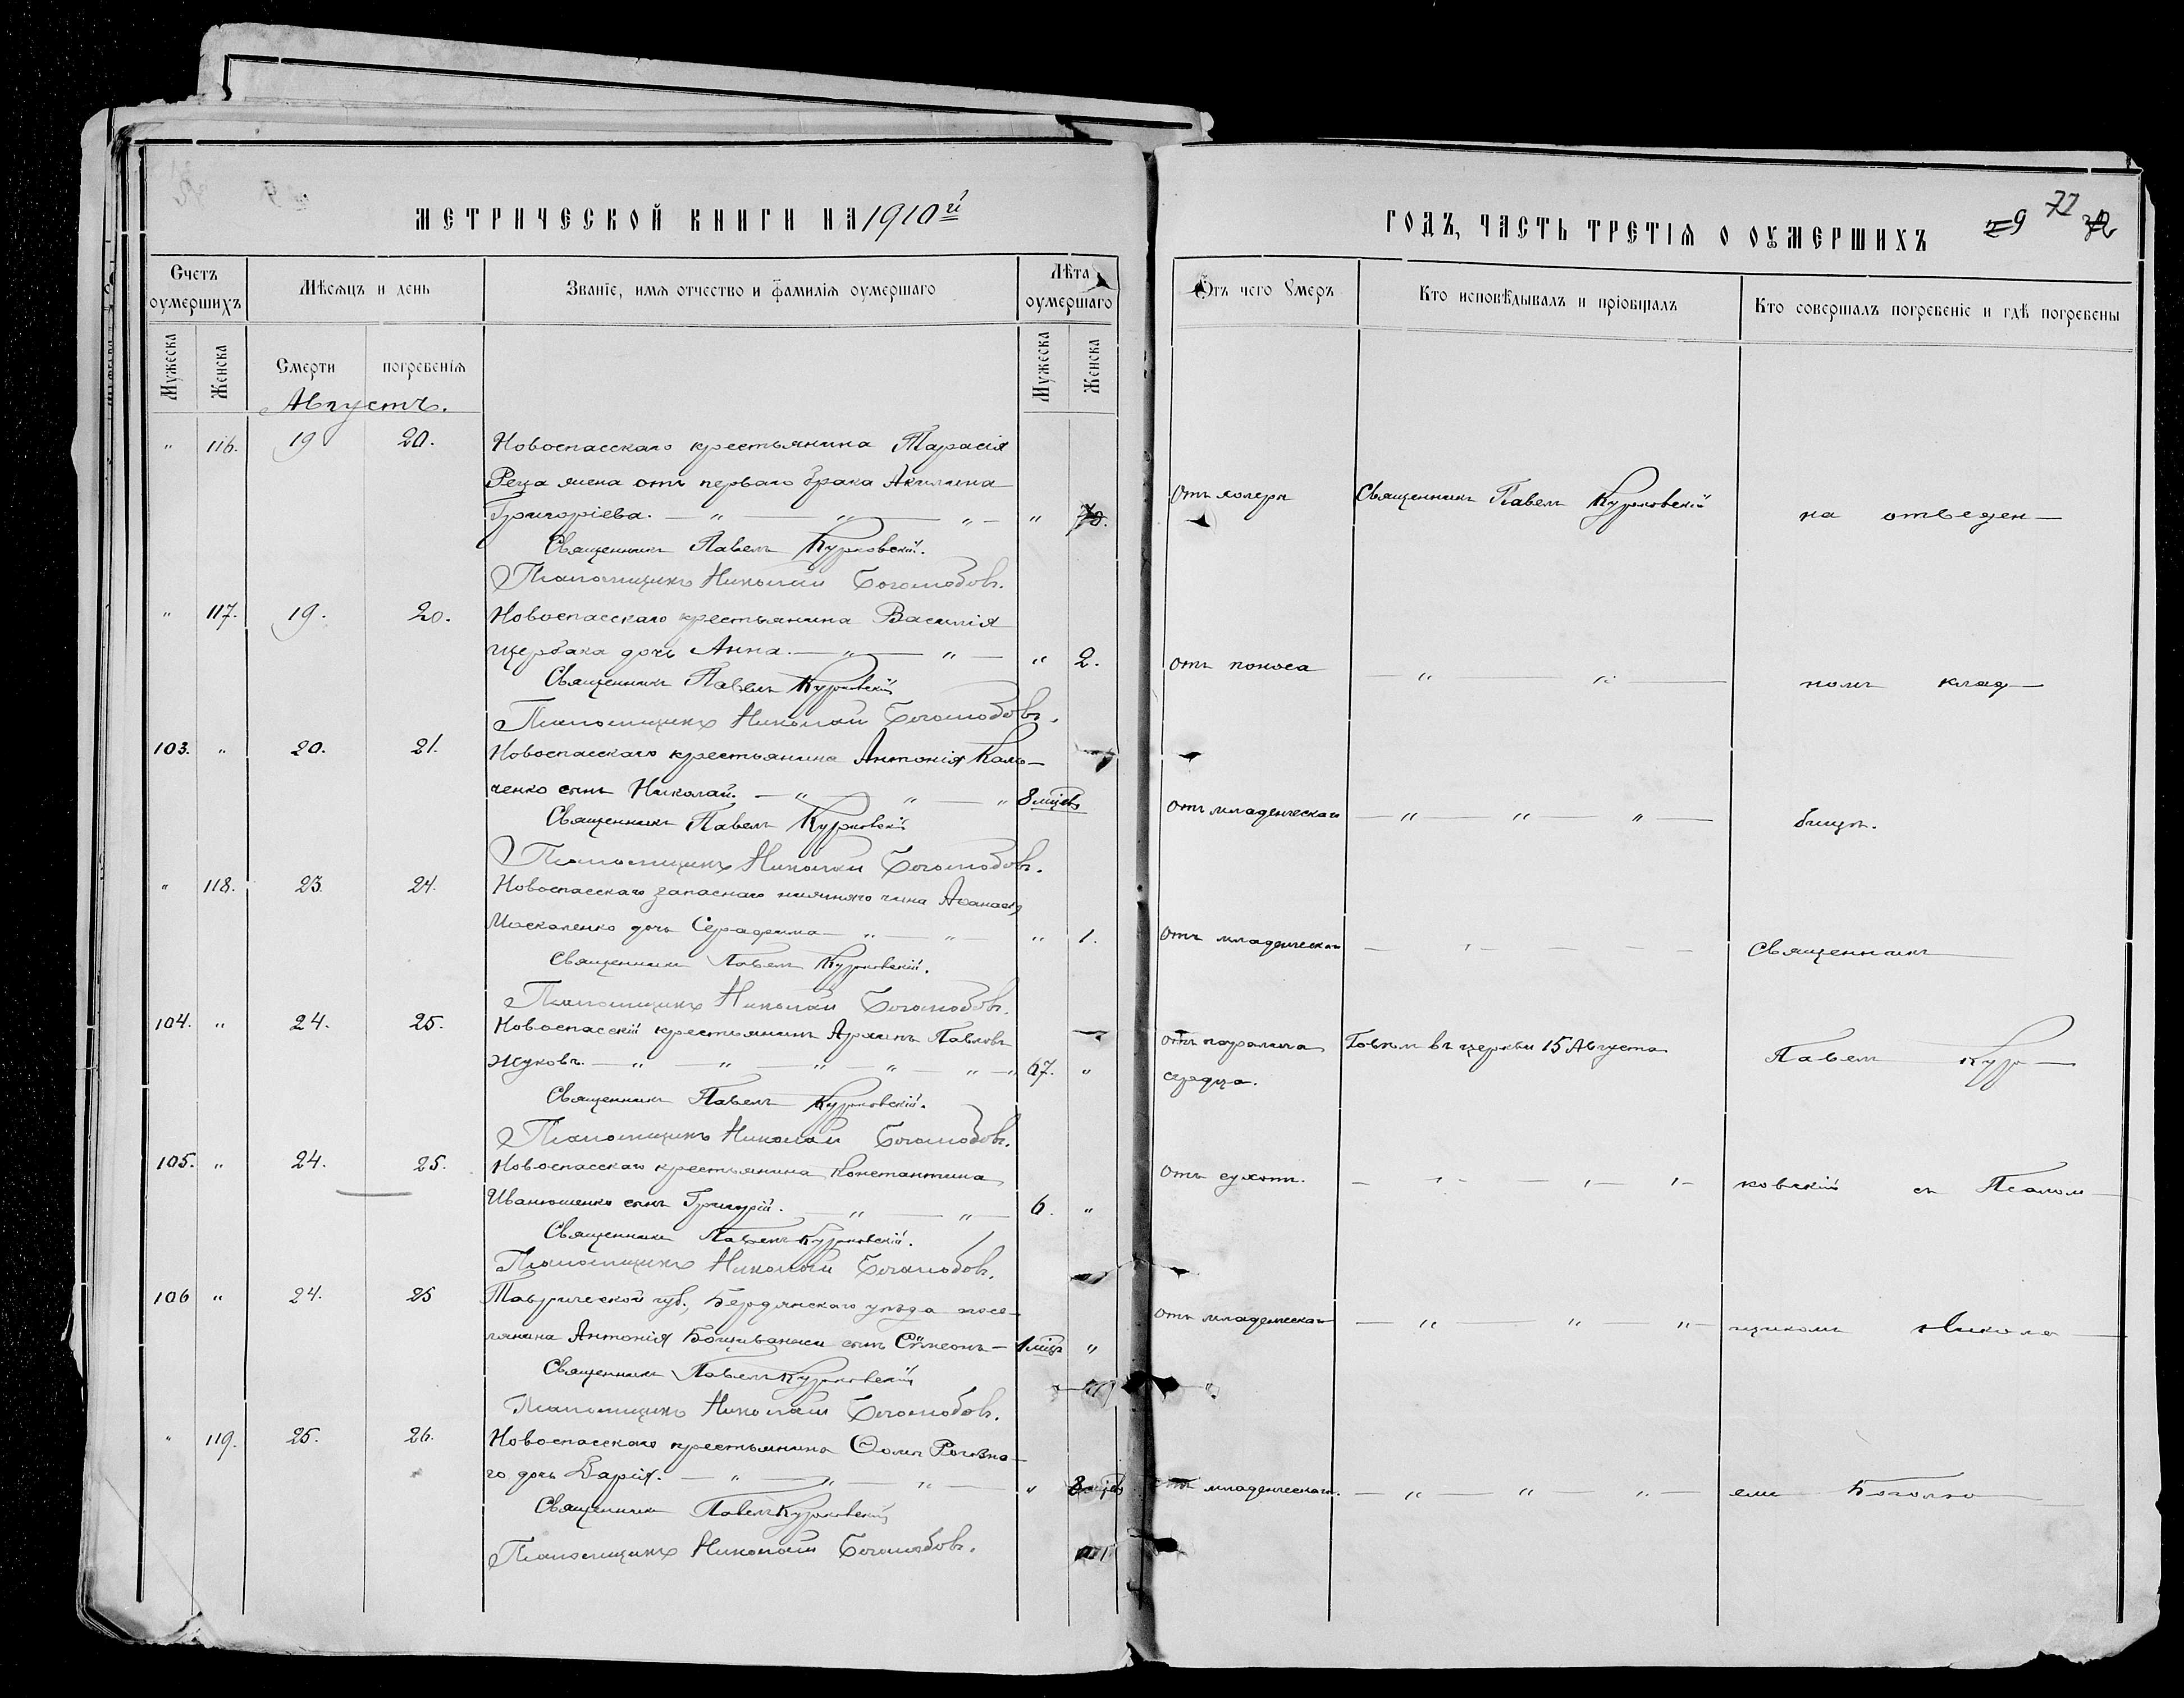 МЕТРИЧЕСКОЙ КНИГИ НА 1910й
Счетъ оумершихъ
Мѣсяцъ и день
Званіе, имя отчество и фамилія оумершаго
Лѣта оумершаго
Мужеска
Женска
Смерти
погребенія
Мужеска
Женска
Августъ.
" 116. 19 20. Новоспасскаго крестьянина Тарасія
жена отъ перваго брака Акилина
Григоріева. — " — " — " — " 70.
Священникъ Павелъ Курковскій.
Псаломщикъ Николай Боголюбовъ.
" 117. 19. 20. Новоспасскаго крестьянина Василія
Щербака дочь Анна. — " — " — " 2.
Священникъ Павелъ Курковскій
Псаломщикъ Николай Боголюбовъ.
103. " 20. 21. Новоспасскаго крестьянина Антонія
ченко сынъ Николай. — " — " — " 8 мцевъ
Священникъ Павелъ Курковскій
Псаломщикъ Николай Боголюбовъ.
" 118. 23. 24. Новоспасскаго запаснаго нижняго чина Аѳанасія
Москаленко дочь Серафима — " — " — " 1.
Священникъ Павелъ Курковскій.
Псаломщикъ Николай Боголюбовъ.
104. " 24. 25. Новоспасскій крестьянинъ Архипъ Павловъ
Жуковъ. — " — " — " — " — " — " 67. "
Священникъ Павелъ Курковскій.
Псаломщикъ Николай Боголюбовъ.
105. " 24. 25. Новоспасскаго крестьянина Константина
Иванюшенко сынъ Григорій. — " — " — 6. "
Священникъ Павелъ Курковскій.
Псаломщикъ Николай Боголюбовъ.
106 " 24. 25 Таврической губ., Бердянскаго уѣзда посе-
лянина Антонія сынъ Сѵмеонъ — 1 мцъ "
Священникъ Павелъ Курковскій
Псаломщикъ Николай Боголюбовъ.
" 119. 25. 26. Новоспасскаго крестьянина Ѳомы
го дочь Дарія. — " — " — " — " 8 мцевъ
Священникъ Павелъ Курковскій
Псаломщикъ Николай Боголюбовъ.
ГОДЪ, ЧАСТЬ ТРЕТІЯ О ОУМЕРШИХЪ
72
Отъ чего Умеръ
Кто исповѣдывалъ и пріобщалъ
Кто совершалъ погребеніе и гдѣ погребены
Отъ холеры Священникъ Павелъ Курковскій на отведен—
Отъ поноса — " — " — номъ клад—
Отъ младенческаго — " — " — " — бищѣ.
Отъ младенческаго — " — — — Священникъ
Отъ паралича Говѣлъ въ церкви 15 Августа Павелъ Кур—
сердца.
Отъ сухотъ. — " — " — " — ковскій съ Псалом—
Отъ младенческаго — " — " — " — щикомъ Никола—
Отъ младенческаго. — " — " — " — емъ Боголю—